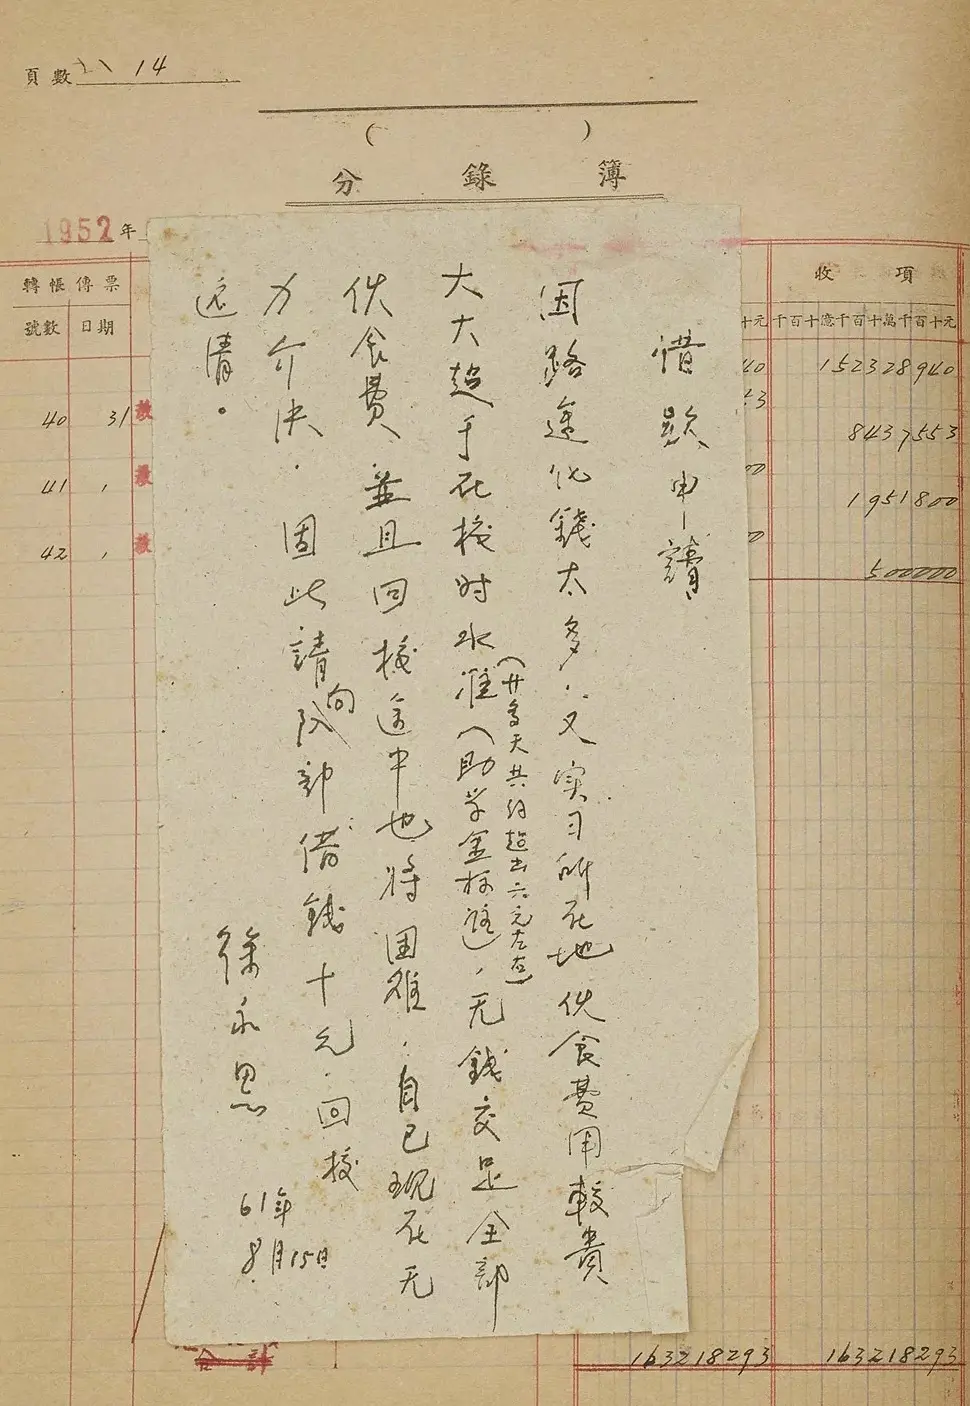 頁數 14
( )
分錄簿
1952年
轉帳傳票
號數 日期
40 31
41
42
收項
千百十億千百十萬千百十元
152328940
8437553
1951800
500000
借款申請
因路途化錢太多，又实习所在地伙食費用較貴
(廿多天共約超出六元左右)
大大超乎在校时水准（助学金标准），无錢交足全部
伙食費，並且回校途中也将困难，自己现在无
力介决．因此請向队部借錢十元．回校
还清。
徐永思
61年
8月15日
合計
163218293 163218293